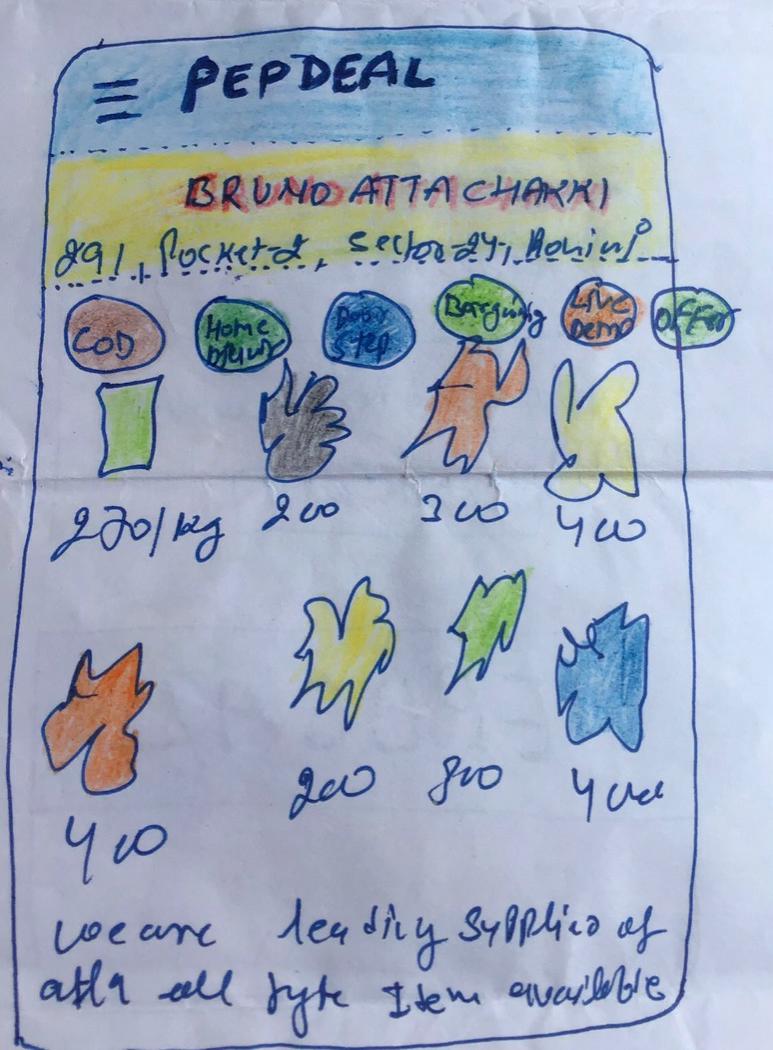 PEPDEAL
BRUNO ATTA CHAKKI
291, Pocket-2, Sector-24, Rohini
COD
Home
Door
Step
Bargaining
Live
Demo
Offer
270/kg 200 300 400
400 200 800 400
we are leading supplier of
atta all type Item available